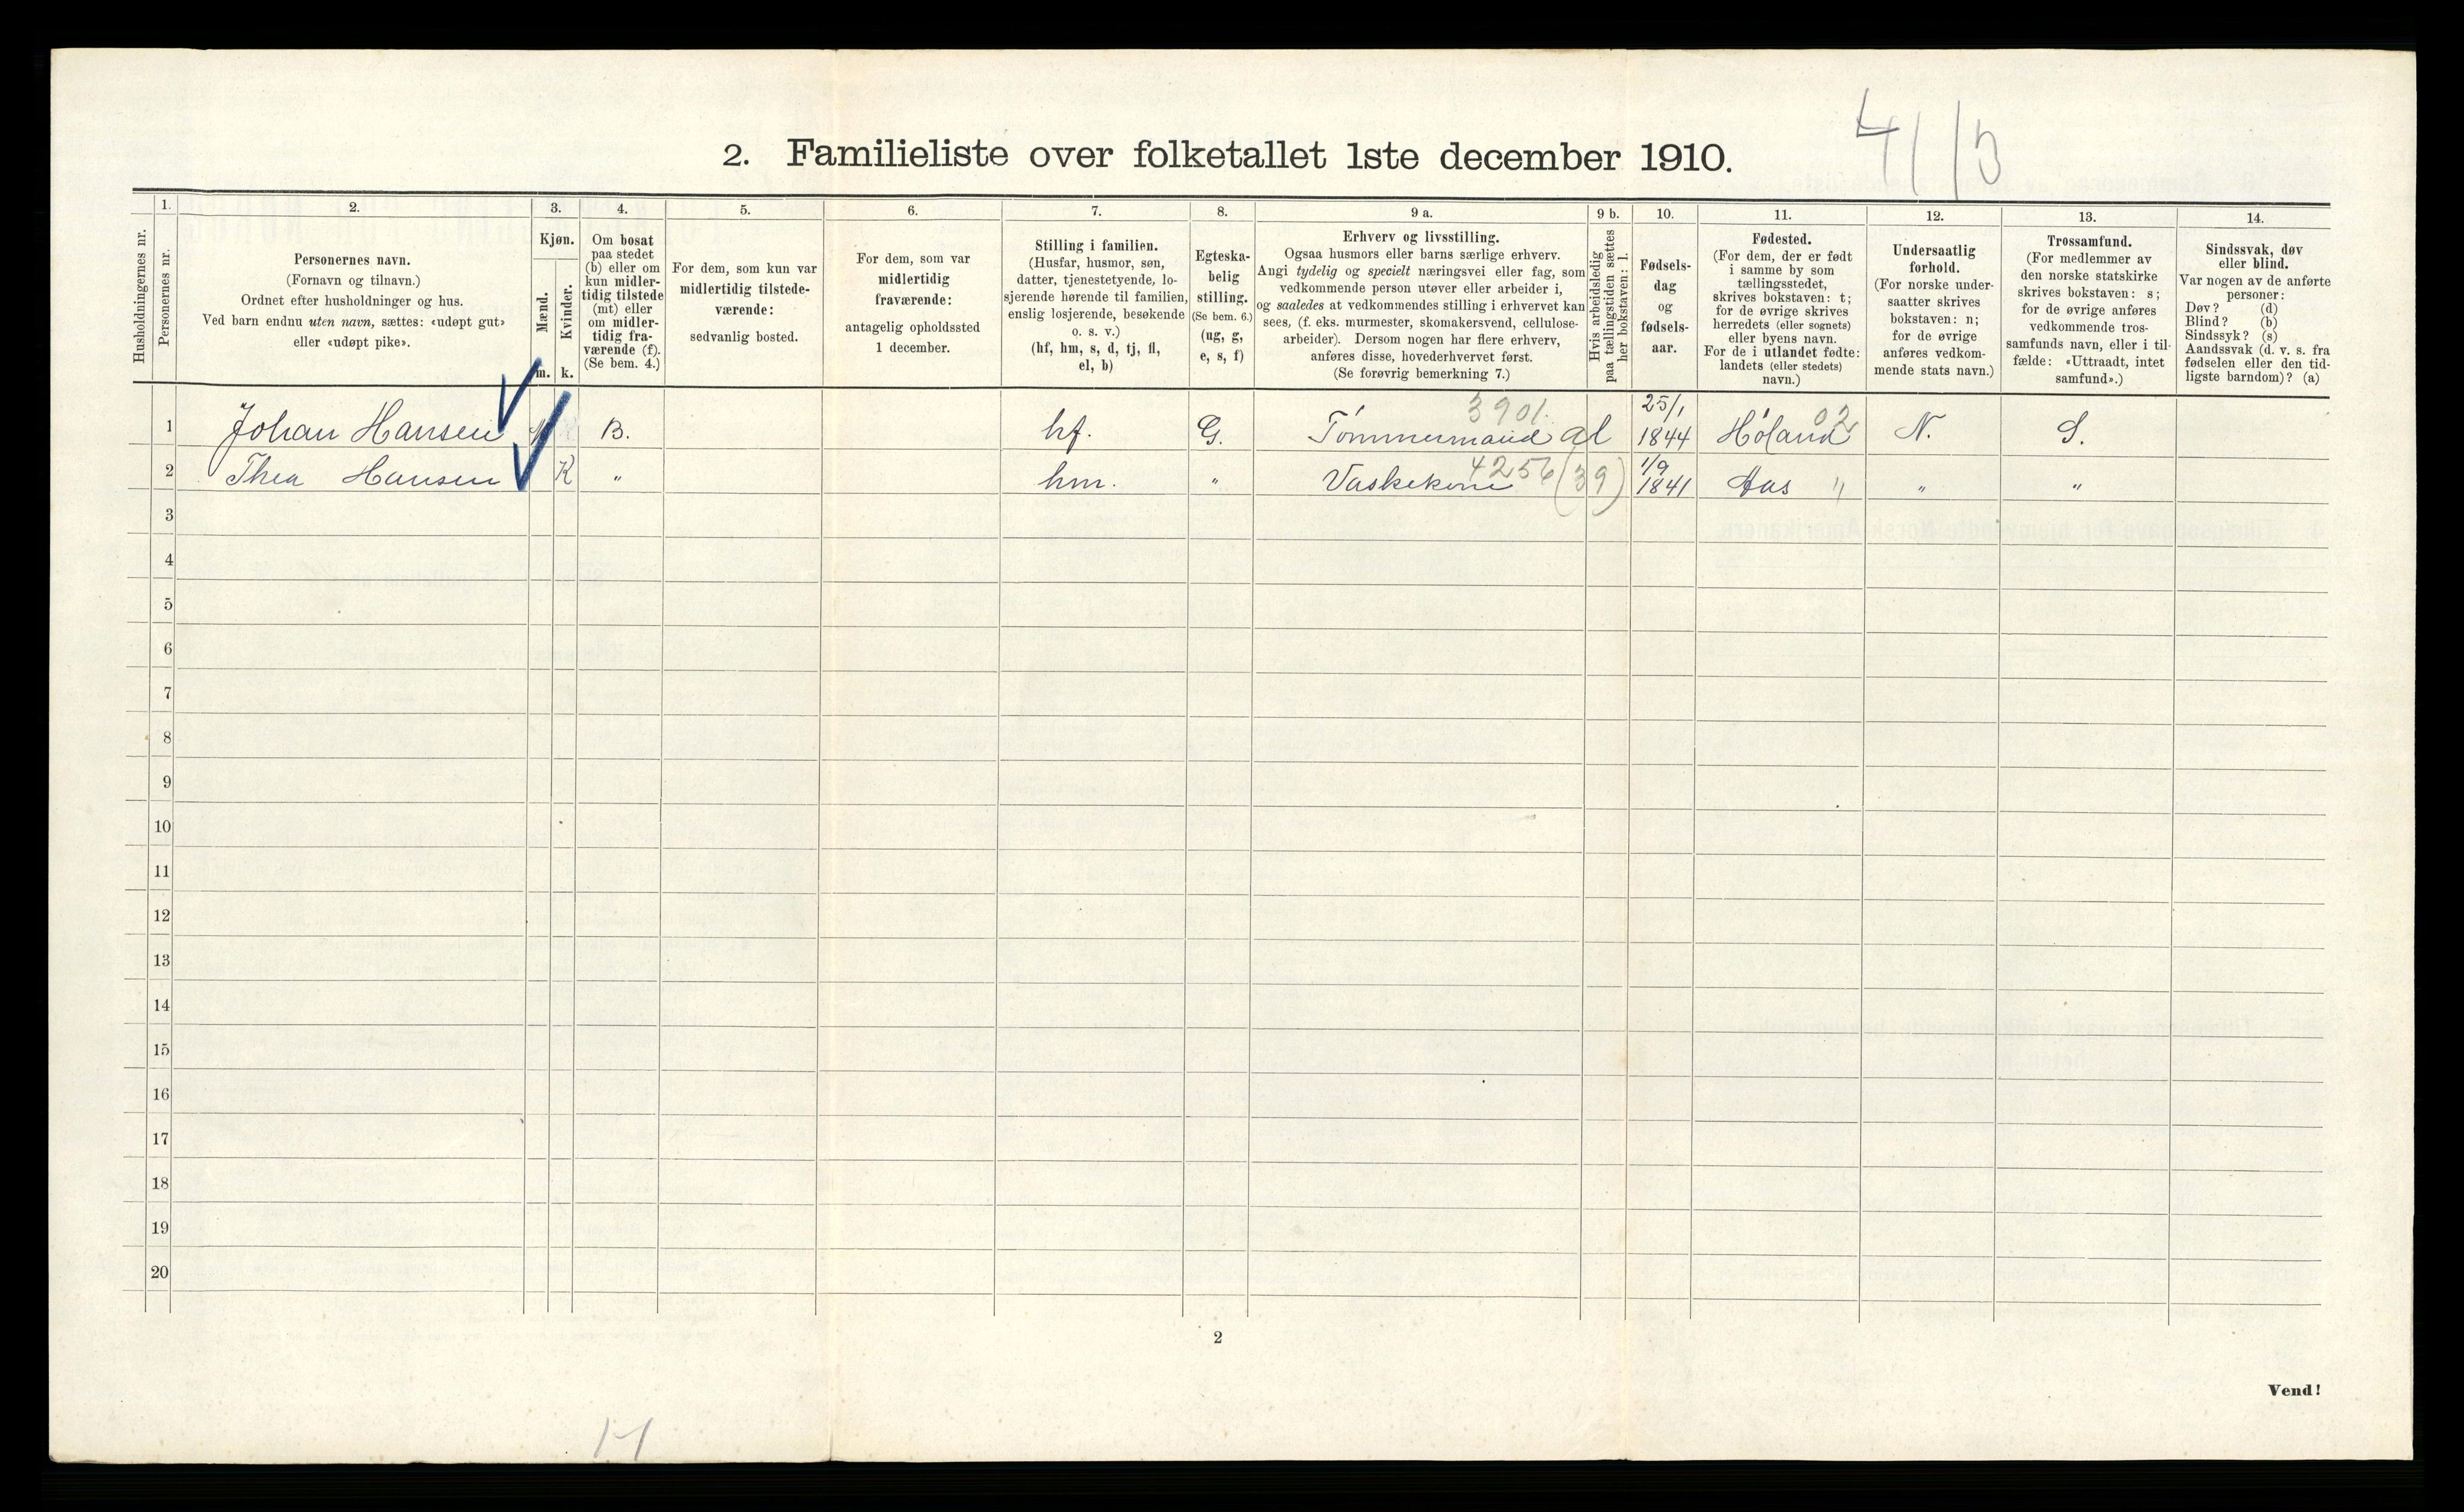 4 | | 3
2. Familieliste over folketallet 1ste december 1910.
Husholdningernes nr.
1. Personernes nr.
2. Personernes navn.
(Fornavn og tilnavn.)
Ordnet efter husholdninger og hus.
Ved barn endnu uten navn, sættes: «udøpt gut»
eller «udøpt pike».
3. Kjøn.
Mænd. m.
Kvinder. k.
4. Om bosat
paa stedet
(b) eller om
kun midler-
tidig tilstede
(mt) eller
om midler-
tidig fra-
værende (f).
(Se bem. 4.)
5. For dem, som kun var
midlertidig tilstede-
værende:
sedvanlig bosted.
6. For dem, som var
midlertidig
fraværende:
antagelig opholdssted
1 december.
7. Stilling i familien.
(Husfar, husmor, søn,
datter, tjenestetyende, lo-
sjerende hørende til familien,
enslig losjerende, besøkende
o. s. v.)
(hf, hm, s, d, tj, fl,
el, b)
8. Egteska-
belig
stilling.
(Se bem. 6.)
(ug, g,
e, s, f)
9 a. Erhverv og livsstilling.
Ogsaa husmors eller barns særlige erhverv.
Angi tydelig og specielt næringsvei eller fag, som
vedkommende person utøver eller arbeider i,
og saaledes at vedkommendes stilling i erhvervet kan
sees, (f. eks. murmester, skomakersvend, cellulose-
arbeider). Dersom nogen har flere erhverv,
anføres disse, hovederhvervet først.
(Se forøvrig bemerkning 7.)
9 b. Hvis arbeidsledig
paa tællingstiden sættes
her bokstaven: l.
10. Fødsels-
dag
og
fødsels-
aar.
11. Fødested.
(For dem, der er født
i samme by som
tællingsstedet,
skrives bokstaven: t;
for de øvrige skrives
herredets (eller sognets)
eller byens navn.
For de i utlandet fødte:
landets (eller stedets)
navn.)
12. Undersaatlig
forhold.
(For norske under-
saatter skrives
bokstaven: n;
for de øvrige
anføres vedkom-
mende stats navn.)
13. Trossamfund.
(For medlemmer av
den norske statskirke
skrives bokstaven: s;
for de øvrige anføres
vedkommende tros-
samfunds navn, eller i til-
fælde: «Uttraadt, intet
samfund».)
14. Sindssvak, døv
eller blind.
Var nogen av de anførte
personer:
Døv? (d)
Blind? (b)
Sindssyk? (s)
Aandssvak (d. v. s. fra
fødselen eller den tid-
ligste barndom)? (a)
1 Johan Hansen B. hf. G. Tømmermand 3901. al 25/1 1844 Høland 02 N. S.
2 Thea Hansen K " hm. " Vaskekone 4256 (39) 1/9 1841 Aas " " "
3
4
5
6
7
8
9
10
11
12
13
14
15
16
17
18
19
20
2
Vend!